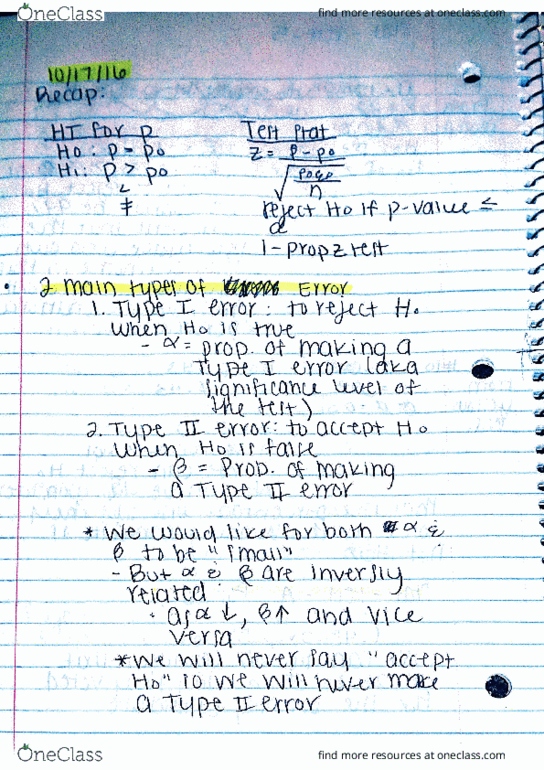 OneClass
find more resources at oneclass.com
10/17/16
Recap:
HT for p
Test Stat
Ho: p = po
z = p - po
H1: p > po
√ poqo
<
n
≠
reject Ho if p-value ≤
α
1-propztest
2 main types of Error
1. Type I error: to reject Ho
when Ho is true
- α = prop. of making a
Type I error (aka
significance level of
the test)
2. Type II error: to accept Ho
when Ho is false
- β = Prob. of making
a Type II error
* We would like for both α &
β to be "small"
- But α & β are inversly
related
· as α ↓, β↑ and vice
versa
*We will never say "accept
Ho" so we will never make
a Type II error
OneClass
find more resources at oneclass.com